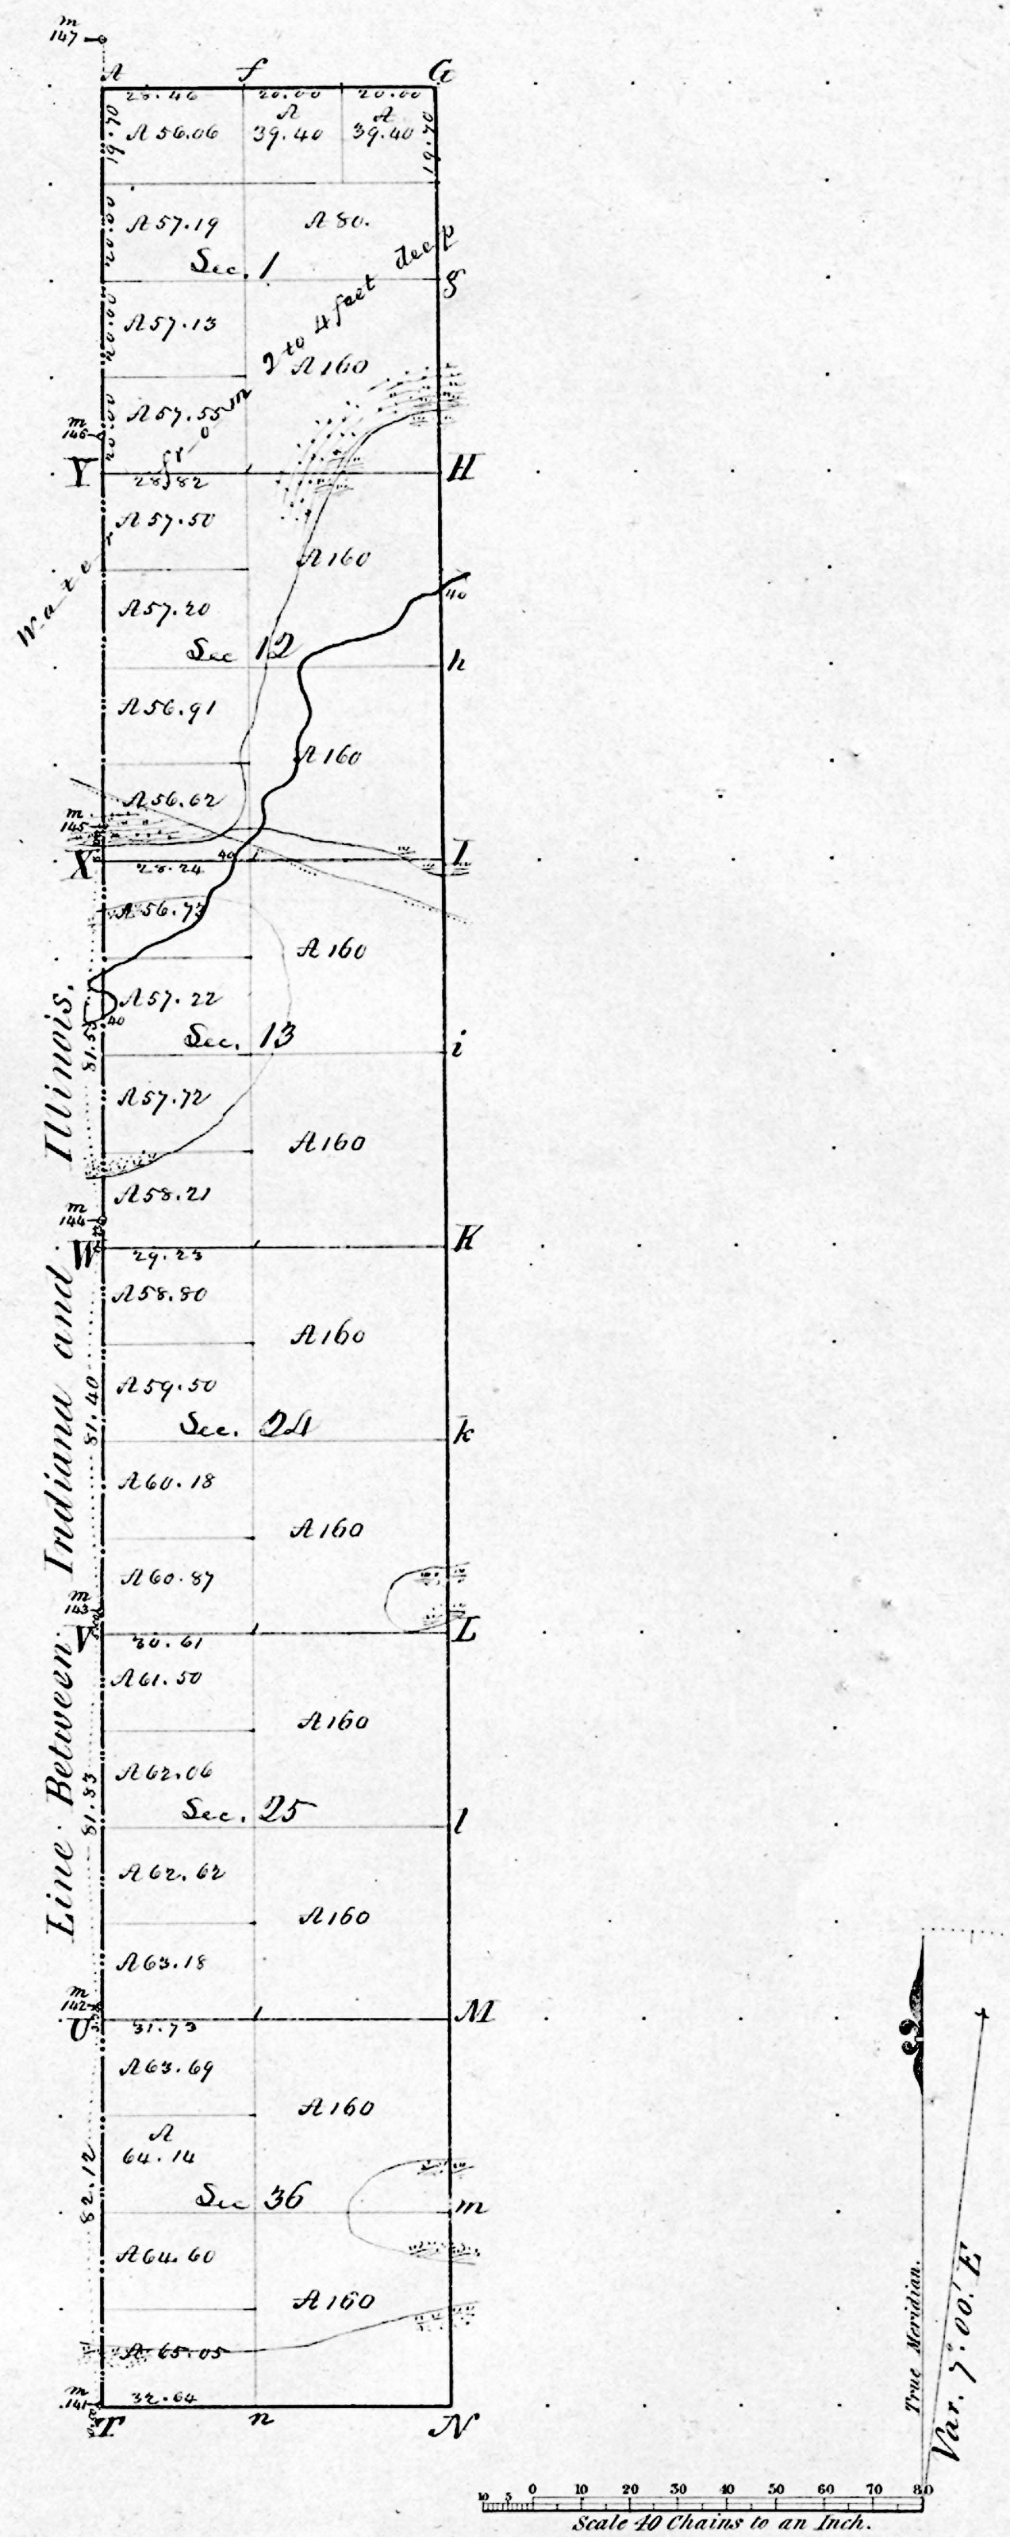 m
147
A f G
28.46 20.00 20.00
19.70 A 56.06 A 39.40 A 39.40 19.70
20.00 A 57.19 A 80.
Sec. 1
g
20.00 A 57.13
Water from 2 to 4 feet deep
A 160
20.00 A 57.55
m
146
Y 28.82 H
A 57.50
A 160
40
A 57.20
Sec 12 h
A 56.91
A 160
A 56.62
m
145
X 28.24 40 I
A 56.73
A 160
A 57.22
40
81.53
Sec. 13 i
A 57.72
A 160
A 58.21
m
144
W 29.23 K
A 58.80
A 160
81.40 A 59.50
Sec. 24 k
A 60.18
A 160
A 60.87
m
143
V 30.61 L
A 61.50
A 160
81.83 A 62.06
Sec. 25 l
A 62.62
A 160
A 63.18
m
142
U 31.73 M
A 63.69
A 160
A
64.14
82.12
Sec 36 m
A 64.60
A 160
A 65.05
m
141
32.64
T n N
Line Between Indiana and Illinois.
True Meridian.
Var. 7°.00' E
10 5 0 10 20 30 40 50 60 70 80
Scale 40 Chains to an Inch.